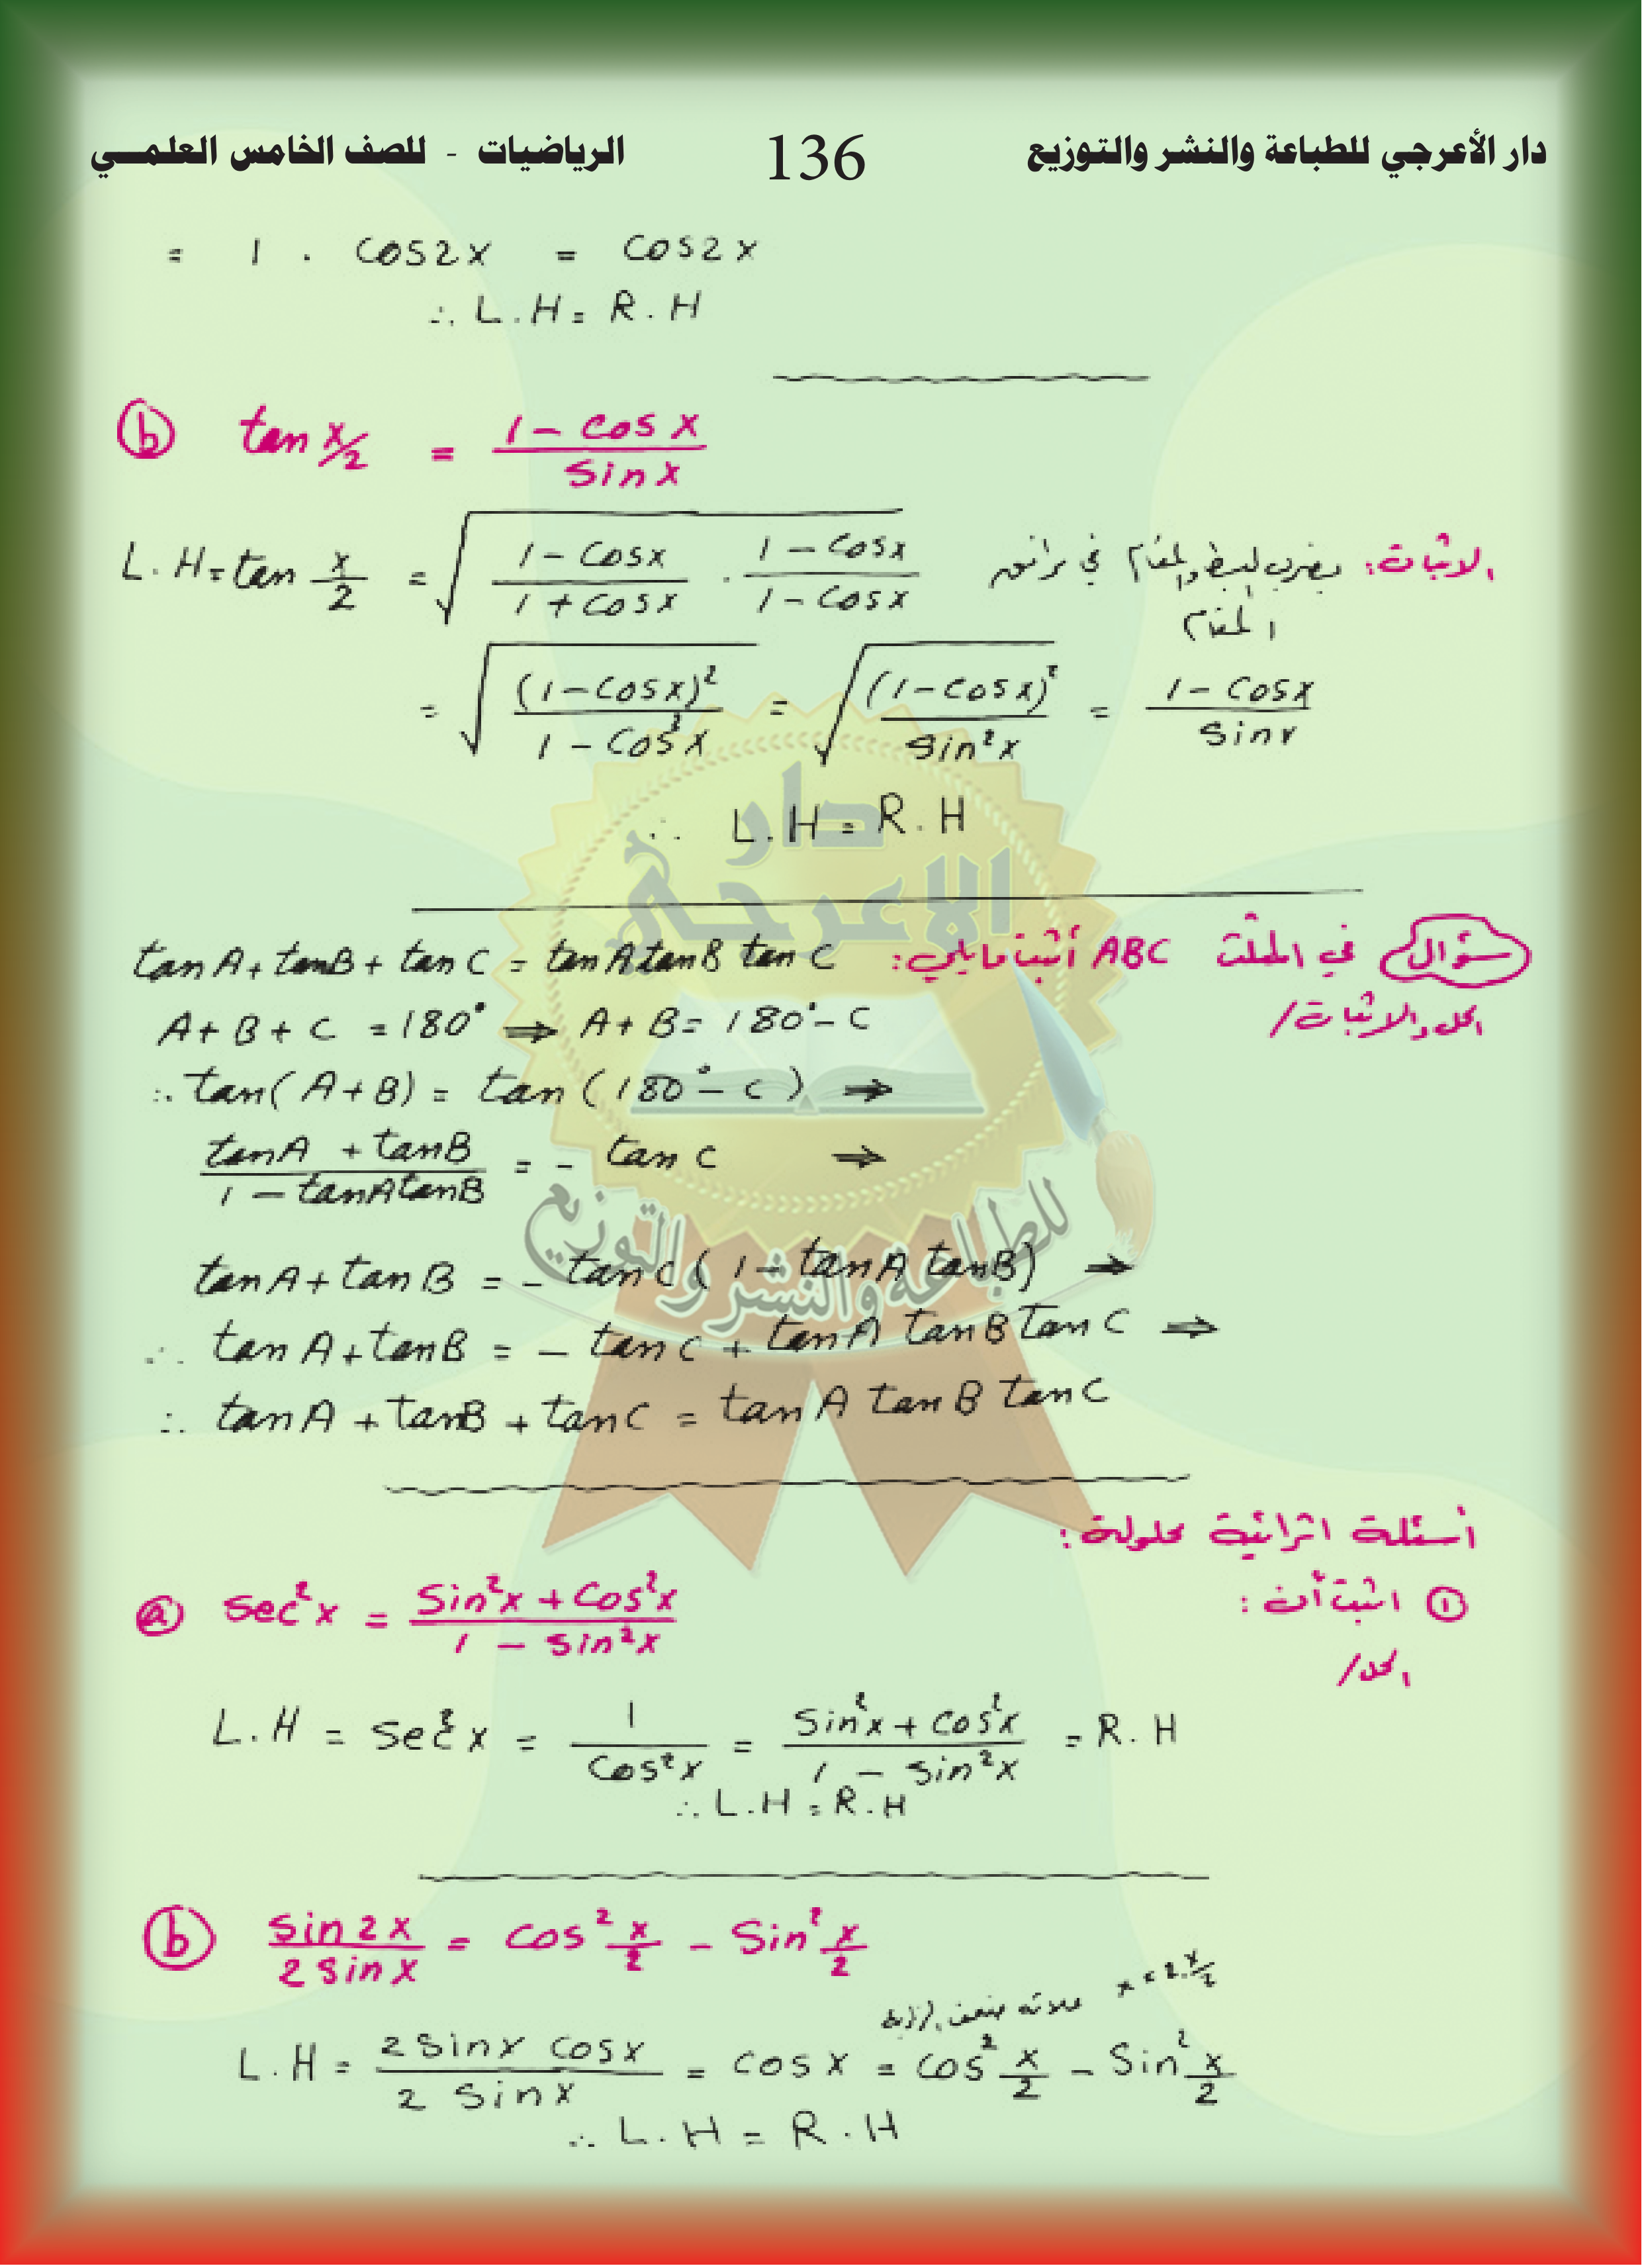 دار الأعرجي للطباعة والنشر والتوزيع 136 الرياضيات - للصف الخامس العلمي
= 1 . cos2x = cos2x
∴ L.H = R.H
ⓑ tan x/2 = (1 - cos x)/(sin x)
الاثبات: بضرب البسط والمقام في مرافق المقام
L.H = tan x/2 = √((1 - cosx)/(1 + cosx) . (1 - cosx)/(1 - cosx))
= √((1 - cosx)²/(1 - cos²x)) = √((1 - cosx)²/(sin²x)) = (1 - cosx)/(sinx)
∴ L.H = R.H
سؤال في المثلث ABC أثبت مايلي: tanA + tanB + tanC = tanA tanB tanC
الحل والاثبات/
A + B + C = 180° ⇒ A + B = 180° - C
∴ tan(A + B) = tan(180° - C) ⇒
(tanA + tanB)/(1 - tanA tanB) = - tanC ⇒
tanA + tanB = - tanC(1 - tanA tanB) ⇒
∴ tanA + tanB = - tanC + tanA tanB tanC ⇒
∴ tanA + tanB + tanC = tanA tanB tanC
أسئلة اثرائية محلولة:
① اثبت أن:
ⓐ sec²x = (sin²x + cos²x)/(1 - sin²x)
الحل/
L.H = sec²x = 1/(cos²x) = (sin²x + cos²x)/(1 - sin²x) = R.H
∴ L.H = R.H
ⓑ (sin2x)/(2 sinx) = cos² x/2 - sin² x/2
ضعف الزاوية
L.H = (2 sinx cosx)/(2 sinx) = cosx = cos² x/2 - sin² x/2
∴ L.H = R.H
دار
الاعرجي
للطباعة والنشر والتوزيع